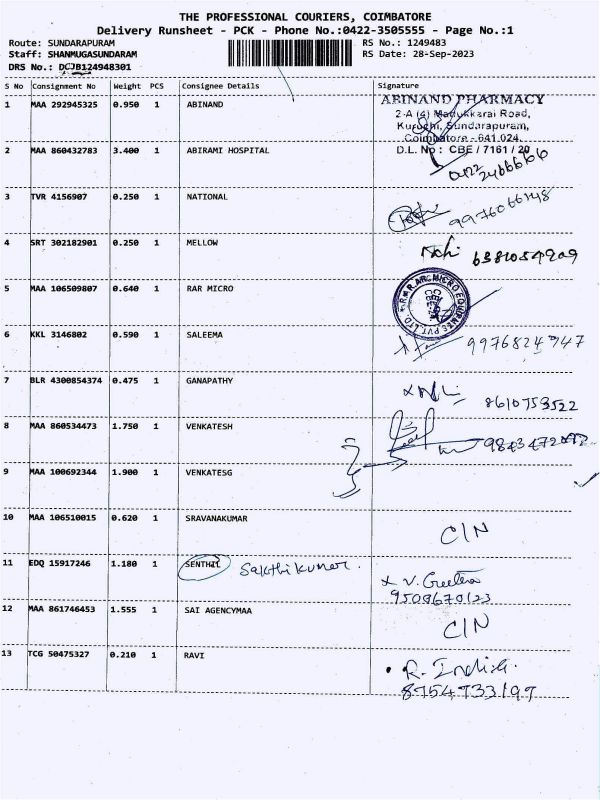 THE PROFESSIONAL COURIERS, COIMBATORE
Delivery Runsheet - PCK - Phone No.:0422-3505555 - Page No.:1
Route: SUNDARAPURAM RS No.: 1249483
Staff: SHANMUGASUNDARAM RS Date: 28-Sep-2023
DRS No.: DCJB124948301
S No Consignment No Weight PCS Consignee Details Signature
1 MAA 292945325 0.950 1 ABINAND
ABINAND PHARMACY
2-A (4) Madukkarai Road,
Kuruchi, Sundarapuram,
Coimbatore - 641 024.
D.L. No : CBE / 7161 / 20
2 MAA 860432783 3.400 1 ABIRAMI HOSPITAL
0422
2466666
3 TVR 4156907 0.250 1 NATIONAL
9976066148
4 SRT 302182901 0.250 1 MELLOW
6381054909
5 MAA 106509807 0.640 1 RAR MICRO
6 KKL 3146802 0.590 1 SALEEMA
9976824947
7 BLR 4300854374 0.475 1 GANAPATHY
8610753522
8 MAA 860534473 1.750 1 VENKATESH
9 MAA 100692344 1.900 1 VENKATESG
10 MAA 106510015 0.620 1 SRAVANAKUMAR
C/N
11 EDQ 15917246 1.180 1 SENTHIL Sakthikumar.
x V. Geetha
9509670123
12 MAA 861746453 1.555 1 SAI AGENCYMAA
C/N
13 TCG 50475327 0.210 1 RAVI
R. Indira.
8754733197